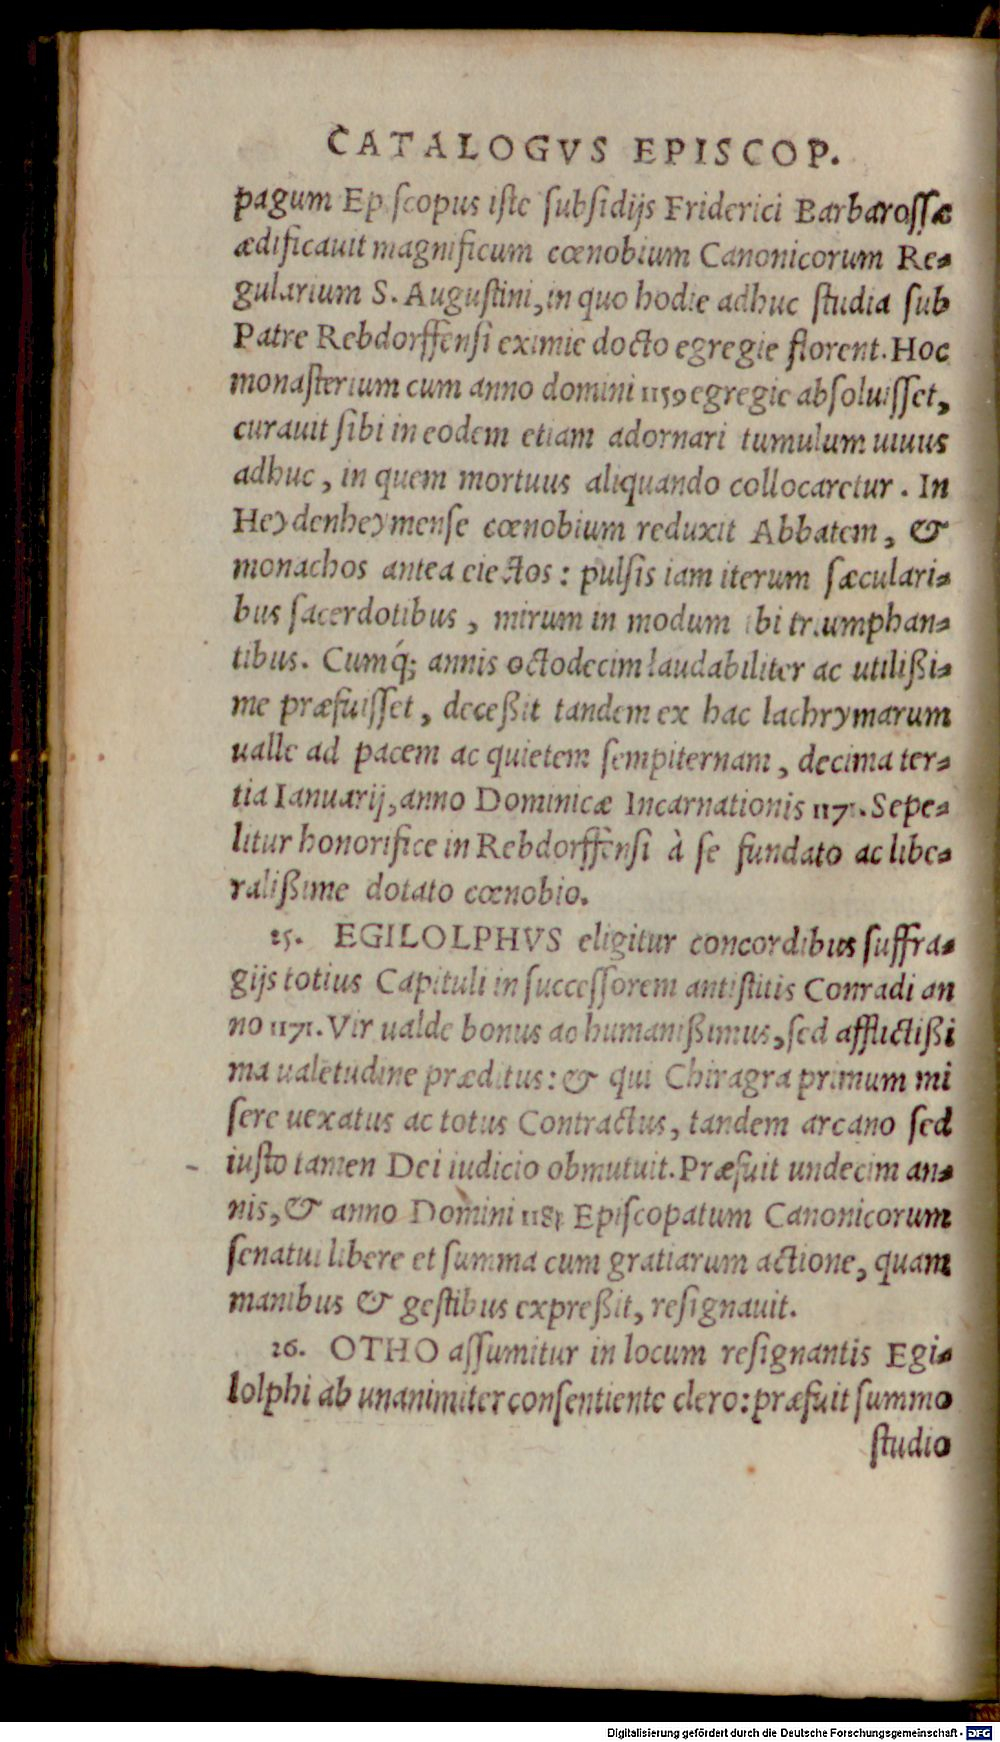 CATALOGVS EPISCOP.
pagum Ep scopus iste subsidijs Friderici Barbarossæ
ædificauit magnificum cœnobium Canonicorum Re-
gularium S. Augustini, in quo hodie adhuc studia sub
Patre Rebdorffensi eximie docto egregie florent. Hoc
monasterium cum anno domini 1159 egregie absoluisset,
curauit sibi in eodem etiam adornari tumulum uiuus
adhuc, in quem mortuus aliquando collocaretur. In
Heydenheymense cœnobium reduxit Abbatem, &
monachos antea eiectos: pulsis iam iterum sæculari-
bus sacerdotibus, mirum in modum ibi triumphan-
tibus. Cumq́; annis octodecim laudabiliter ac utilißi-
me præfuisset, deceßit tandem ex hac lachrymarum
ualle ad pacem ac quietem sempiternam, decima ter-
tia Ianuarij, anno Dominicæ Incarnationis 1171. Sepe-
litur honorifice in Rebdorffensi à se fundato ac libe-
ralißime dotato cœnobio.
25. EGILOLPHVS eligitur concordibus suffra-
gijs totius Capituli in successorem antistitis Conradi an
no 1171. Vir ualde bonus ac humanißimus, sed afflictißi
ma ualetudine præditus: & qui Chiragra primum mi
sere uexatus ac totus Contractus, tandem arcano sed
iusto tamen Dei iudicio obmutuit. Præfuit undecim an-
nis, & anno Domini Episcopatum Canonicorum
senatui libere et summa cum gratiarum actione, quam
manibus & gestibus expreßit, resignauit.
26. OTHO assumitur in locum resignantis Egi-
lolphi ab unanimiter consentiente clero: præfuit summo
studio
Digitalisierung gefördert durch die Deutsche Forschungsgemeinschaft - DFG